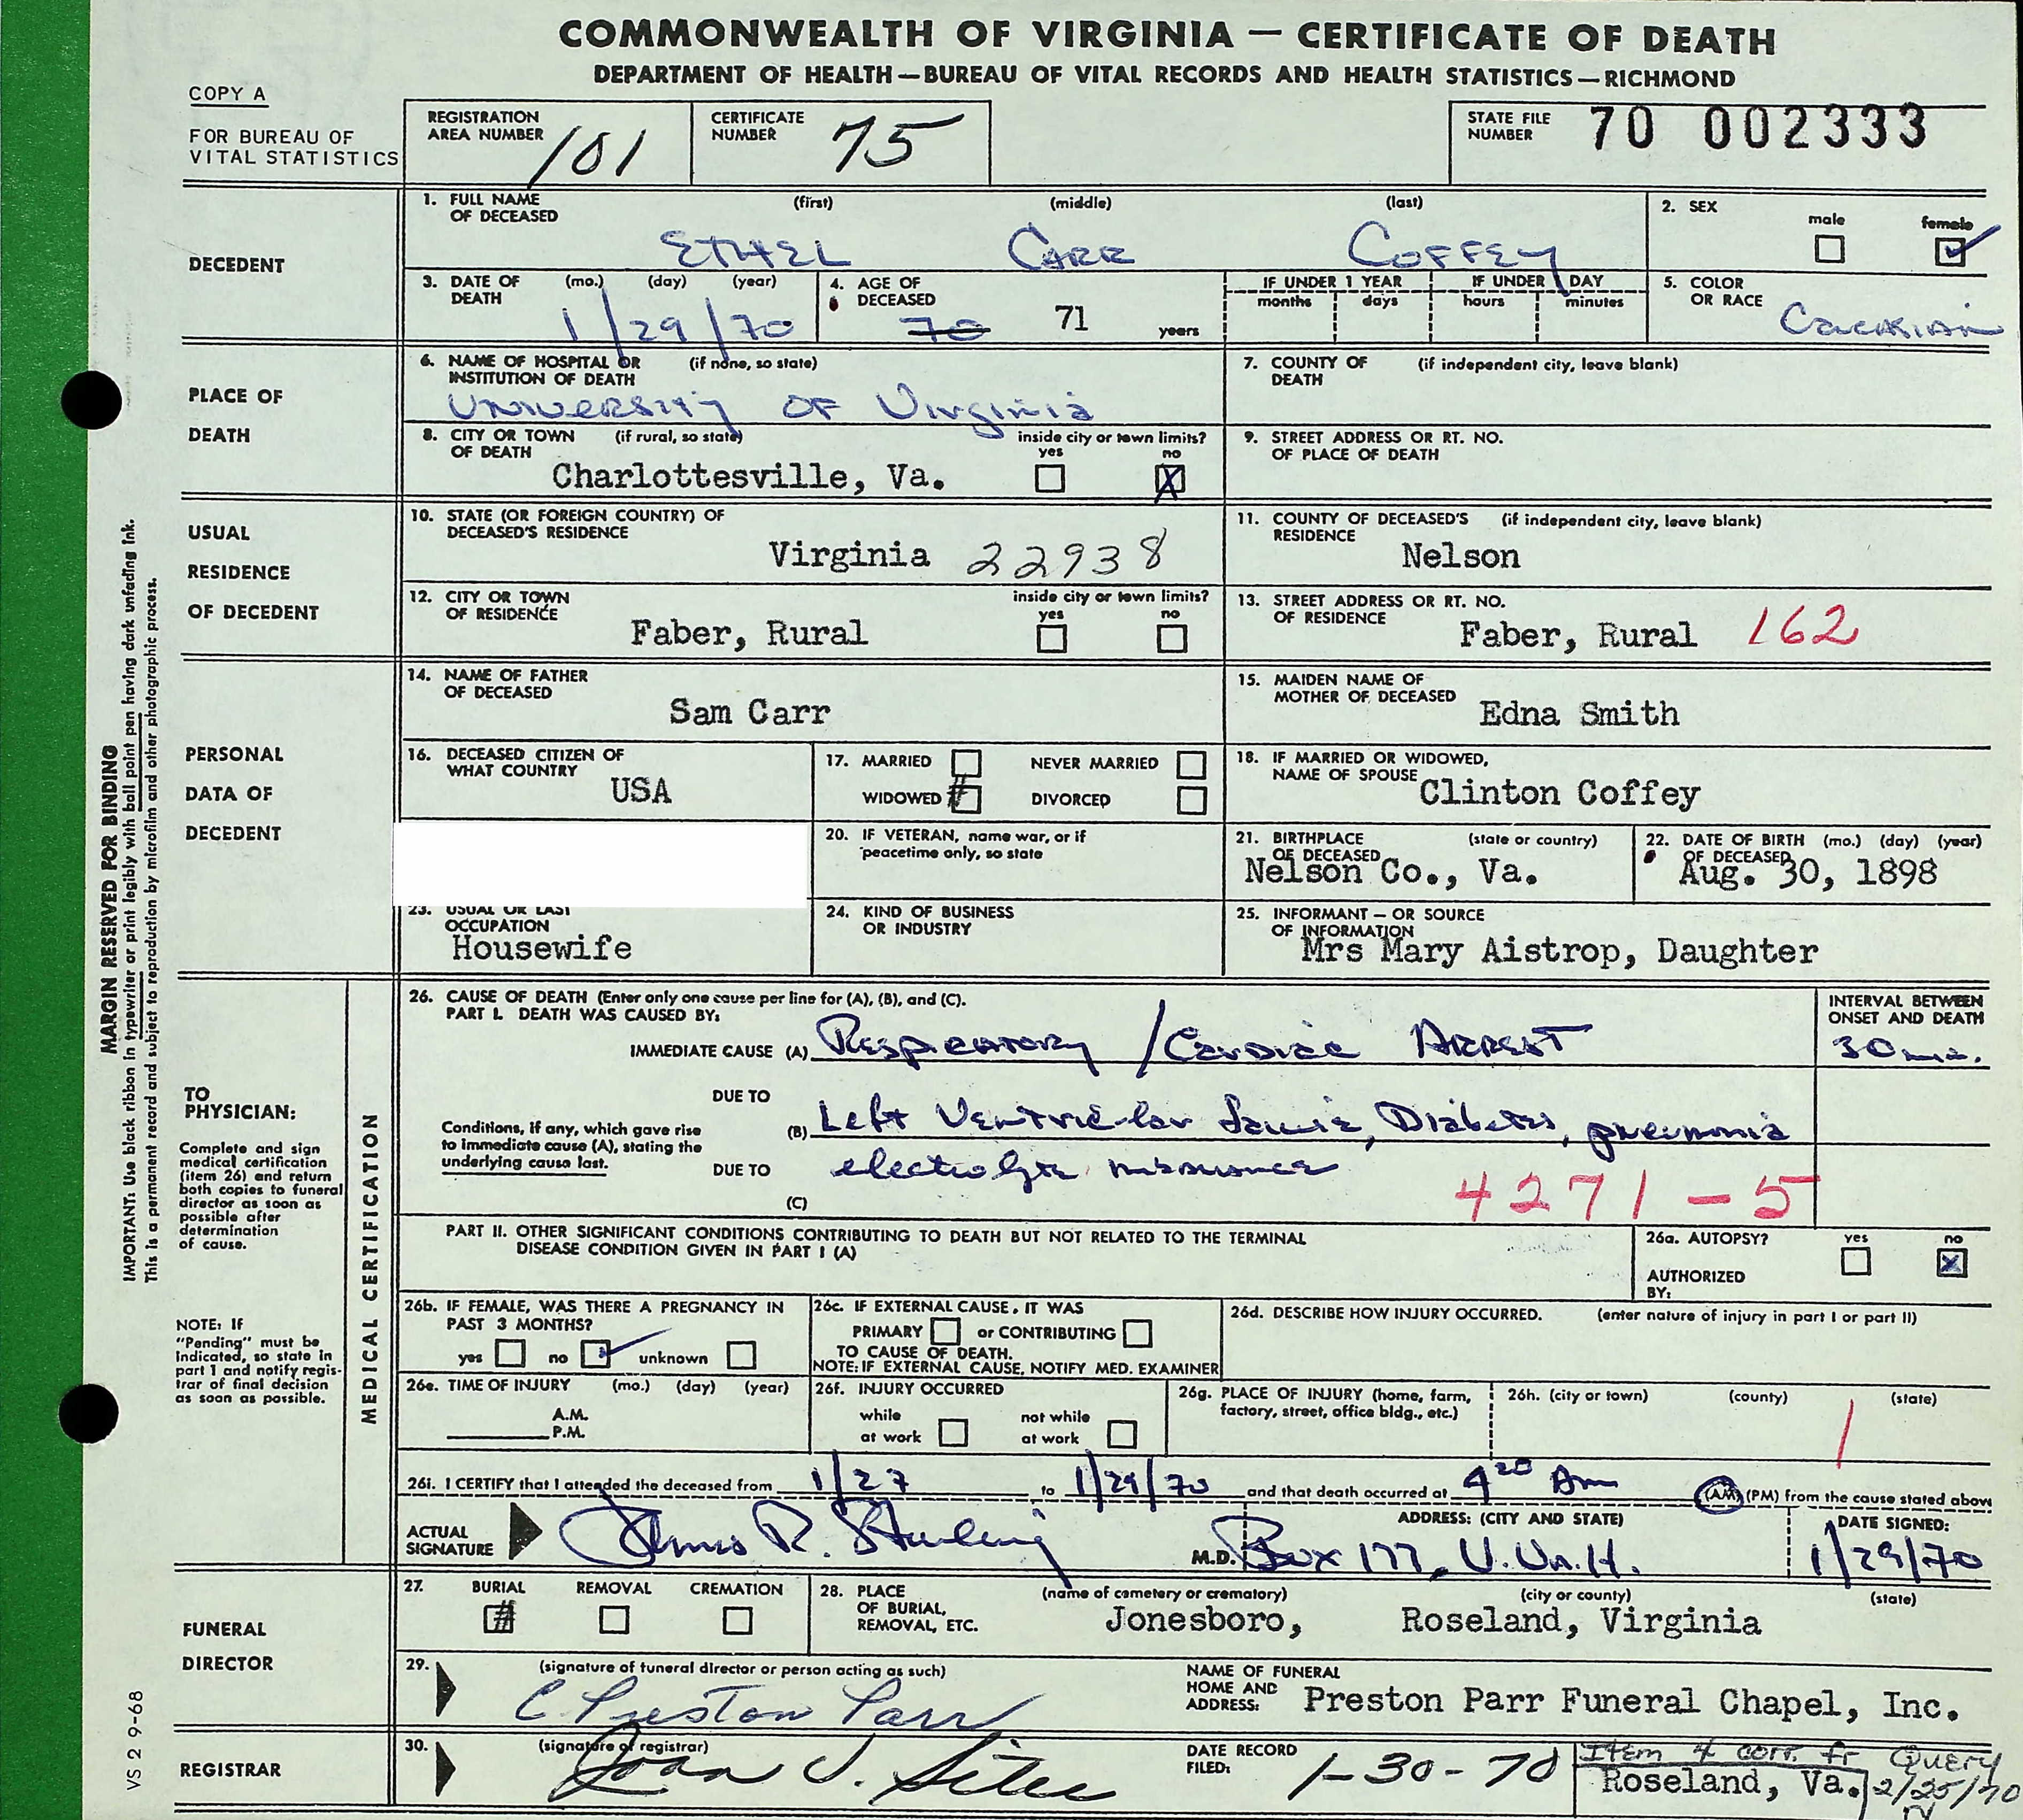 COMMONWEALTH OF VIRGINIA — CERTIFICATE OF DEATH
DEPARTMENT OF HEALTH — BUREAU OF VITAL RECORDS AND HEALTH STATISTICS — RICHMOND
COPY A
FOR BUREAU OF
VITAL STATISTICS
REGISTRATION
AREA NUMBER 101
CERTIFICATE
NUMBER 75
STATE FILE
NUMBER 70 002333
DECEDENT
1. FULL NAME (first) (middle) (last)
OF DECEASED
ETHEL CARR COFFEY
2. SEX
male female
3. DATE OF (mo.) (day) (year)
DEATH
1/29/70
4. AGE OF
DECEASED
70 71 years
IF UNDER 1 YEAR IF UNDER 1 DAY
months days hours minutes
5. COLOR
OR RACE Caucasian
PLACE OF
DEATH
6. NAME OF HOSPITAL OR (if none, so state)
INSTITUTION OF DEATH
University of Virginia
7. COUNTY OF (if independent city, leave blank)
DEATH
8. CITY OR TOWN (if rural, so state) inside city or town limits?
OF DEATH yes no
Charlottesville, Va. X
9. STREET ADDRESS OR RT. NO.
OF PLACE OF DEATH
USUAL
RESIDENCE
OF DECEDENT
10. STATE (OR FOREIGN COUNTRY) OF
DECEASED'S RESIDENCE
Virginia 22938
11. COUNTY OF DECEASED'S (if independent city, leave blank)
RESIDENCE
Nelson
12. CITY OR TOWN inside city or town limits?
OF RESIDENCE yes no
Faber, Rural
13. STREET ADDRESS OR RT. NO.
OF RESIDENCE
Faber, Rural 162
PERSONAL
DATA OF
DECEDENT
14. NAME OF FATHER
OF DECEASED
Sam Carr
15. MAIDEN NAME OF
MOTHER OF DECEASED
Edna Smith
16. DECEASED CITIZEN OF
WHAT COUNTRY
USA
17. MARRIED NEVER MARRIED
WIDOWED # DIVORCED
18. IF MARRIED OR WIDOWED,
NAME OF SPOUSE
Clinton Coffey
20. IF VETERAN, name war, or if
peacetime only, so state
21. BIRTHPLACE (state or country)
OF DECEASED
Nelson Co., Va.
22. DATE OF BIRTH (mo.) (day) (year)
OF DECEASED
Aug. 30, 1898
23. USUAL OR LAST
OCCUPATION
Housewife
24. KIND OF BUSINESS
OR INDUSTRY
25. INFORMANT — OR SOURCE
OF INFORMATION
Mrs Mary Aistrop, Daughter
MARGIN RESERVED FOR BINDING
IMPORTANT: Use black ribbon in typewriter or print legibly with ball point pen having dark unfading ink.
This is a permanent record and subject to reproduction by microfilm and other photographic process.
VS 2 9-68
TO
PHYSICIAN:
Complete and sign
medical certification
(item 26) and return
both copies to funeral
director as soon as
possible after
determination
of cause.
NOTE: If
"Pending" must be
indicated, so state in
part I and notify regis-
trar of final decision
as soon as possible.
MEDICAL CERTIFICATION
26. CAUSE OF DEATH (Enter only one cause per line for (A), (B), and (C).
PART I. DEATH WAS CAUSED BY:
INTERVAL BETWEEN
ONSET AND DEATH
IMMEDIATE CAUSE (A) Respiratory / Cardiac Arrest 30 min.
DUE TO
Conditions, if any, which gave rise
to immediate cause (A), stating the
underlying cause last.
(B) Left Ventricular Diabetes, pneumonia
DUE TO electrolyte
(C) 4271-5
PART II. OTHER SIGNIFICANT CONDITIONS CONTRIBUTING TO DEATH BUT NOT RELATED TO THE TERMINAL
DISEASE CONDITION GIVEN IN PART I (A)
26a. AUTOPSY? yes no
X
AUTHORIZED
BY:
26b. IF FEMALE, WAS THERE A PREGNANCY IN
PAST 3 MONTHS?
yes no unknown
26c. IF EXTERNAL CAUSE, IT WAS
PRIMARY or CONTRIBUTING
TO CAUSE OF DEATH.
NOTE: IF EXTERNAL CAUSE, NOTIFY MED. EXAMINER
26d. DESCRIBE HOW INJURY OCCURRED. (enter nature of injury in part I or part II)
26e. TIME OF INJURY (mo.) (day) (year)
A.M.
P.M.
26f. INJURY OCCURRED
while not while
at work at work
26g. PLACE OF INJURY (home, farm,
factory, street, office bldg., etc.)
26h. (city or town) (county) (state)
1
26i. I CERTIFY that I attended the deceased from 1/27 to 1/29/70 and that death occurred at 4 20 Am (AM) (PM) from the cause stated above
ACTUAL
SIGNATURE
James R. M.D.
ADDRESS: (CITY AND STATE)
Box 177, U.Va.H.
DATE SIGNED:
1/29/70
FUNERAL
DIRECTOR
27. BURIAL REMOVAL CREMATION
#
28. PLACE (name of cemetery or crematory) (city or county) (state)
OF BURIAL,
REMOVAL, ETC.
Jonesboro, Roseland, Virginia
29. (signature of funeral director or person acting as such)
C. Preston Parr
NAME OF FUNERAL
HOME AND
ADDRESS: Preston Parr Funeral Chapel, Inc.
REGISTRAR
30. (signature of registrar)
Joan J.
DATE RECORD
FILED: 1-30-70
Item 4 corr. fr Query
Roseland, Va. 2/25/70